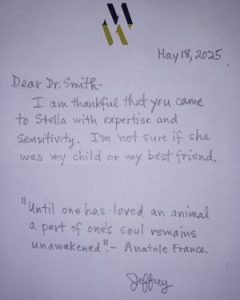 May 18, 2025
Dear Dr. Smith-
I am thankful that you came
to Stella with expertise and
sensitivity. I'm not sure if she
was my child or my best friend.
"Until one has loved an animal
a part of one's soul remains
unawakened".- Anatole France.
Jeffrey